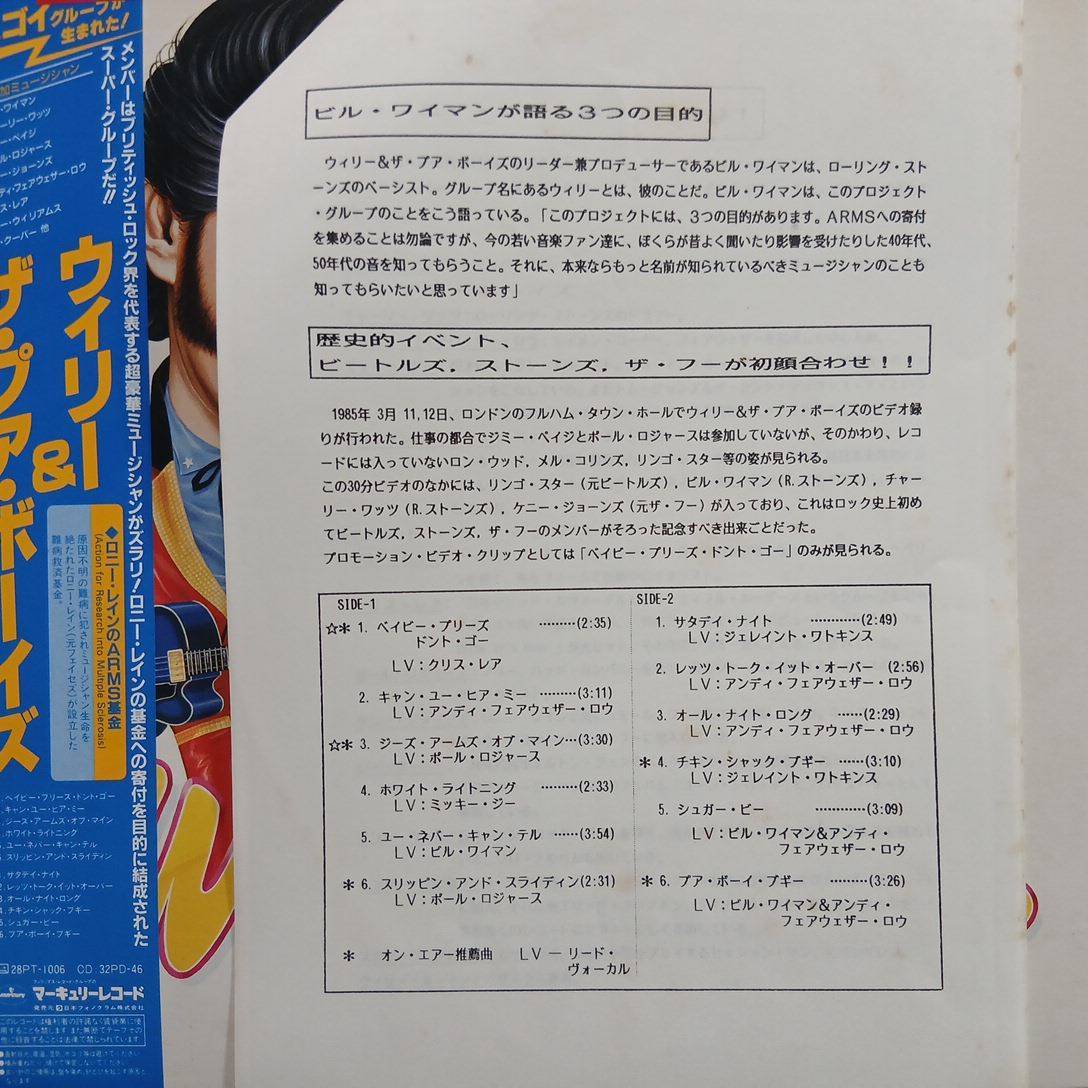 ゴイグループが
生まれた!
加ミュージシャン
・ワイマン
ーリー・ワッツ
ー・ペイジ
ル・ロジャース
ー・ジョーンズ
ディ・フェアウェザー・ロウ
ス・レア
ー・ウィリアムス
ー・クーパー 他
メンバーはブリティッシュ・ロック界を代表する超豪華ミュージシャンがズラリ!ロニー・レインの基金への寄付を目的に結成された
スーパー・グループだ!!
ウィリー
&
ザ・プア・ボーイズ
◆ロニー・レインのARMS基金
(Action for Research into Multiple Sclerosis)
原因不明の難病に犯されミュージシャン生命を
絶たれたロニー・レイン(元フェイセズ)が設立した
難病救済基金。
ベイビー・プリーズ・ドント・ゴー
キャン・ユー・ヒア・ミー
ジーズ・アームズ・オブ・マイン
ホワイト・ライトニング
ユー・ネバー・キャン・テル
スリッピン・アンド・スライディン
サタデイ・ナイト
レッツ・トーク・イット・オーバー
オール・ナイト・ロング
チキン・シャック・ブギー
シュガー・ビー
プアー・ボーイ・ブギー
28PT-1006 CD:32PD-46
マーキュリーレコード
発売元 日本フォノグラム株式会社
ビル・ワイマンが語る3つの目的
ウィリー&ザ・プア・ボーイズのリーダー兼プロデューサーであるビル・ワイマンは、ローリング・スト
ーンズのベーシスト。グループ名にあるウィリーとは、彼のことだ。ビル・ワイマンは、このプロジェクト
・グループのことをこう語っている。「このプロジェクトには、3つの目的があります。ARMSへの寄付
を集めることは勿論ですが、今の若い音楽ファン達に、ぼくらが昔よく聞いたり影響を受けたりした40年代、
50年代の音を知ってもらうこと。それに、本来ならもっと名前が知られているべきミュージシャンのことも
知ってもらいたいと思っています」
歴史的イベント、
ビートルズ, ストーンズ, ザ・フーが初顔合わせ!!
1985年 3月 11,12日、ロンドンのフルハム・タウン・ホールでウィリー&ザ・プア・ボーイズのビデオ録
りが行われた。仕事の都合でジミー・ペイジとポール・ロジャースは参加していないが、そのかわり、レコ
ードには入っていないロン・ウッド, メル・コリンズ, リンゴ・スター等の姿が見られる。
この30分ビデオのなかには、リンゴ・スター(元ビートルズ), ビル・ワイマン(R.ストーンズ), チャー
リー・ワッツ(R.ストーンズ), ケニー・ジョーンズ(元ザ・フー)が入っており、これはロック史上初め
てビートルズ, ストーンズ, ザ・フーのメンバーがそろった記念すべき出来ごとだった。
プロモーション・ビデオ・クリップとしては「ベイビー・プリーズ・ドント・ゴー」のみが見られる。
SIDE-1
☆* 1. ベイビー・プリーズ ………(2:35)
ドント・ゴー
LV:クリス・レア
2. キャン・ユー・ヒア・ミー ………(3:11)
LV:アンディ・フェアウェザー・ロウ
☆* 3. ジーズ・アームズ・オブ・マイン…(3:30)
LV:ポール・ロジャース
4. ホワイト・ライトニング ………(2:33)
LV:ミッキー・ジー
5. ユー・ネバー・キャン・テル ……(3:54)
LV:ビル・ワイマン
* 6. スリッピン・アンド・スライディン(2:31)
LV:ポール・ロジャース
* オン・エアー推薦曲 LV — リード・
ヴォーカル
SIDE-2
1. サタデイ・ナイト …………(2:49)
LV:ジェレイント・ワトキンス
2. レッツ・トーク・イット・オーバー (2:56)
LV:アンディ・フェアウェザー・ロウ
3. オール・ナイト・ロング ……(2:29)
LV:アンディ・フェアウェザー・ロウ
* 4. チキン・シャック・ブギー ……(3:10)
LV:ジェレイント・ワトキンス
5. シュガー・ビー …………(3:09)
LV:ビル・ワイマン&アンディ・
フェアウェザー・ロウ
* 6. プア・ボーイ・ブギー ………(3:26)
LV:ビル・ワイマン&アンディ・
フェアウェザー・ロウ